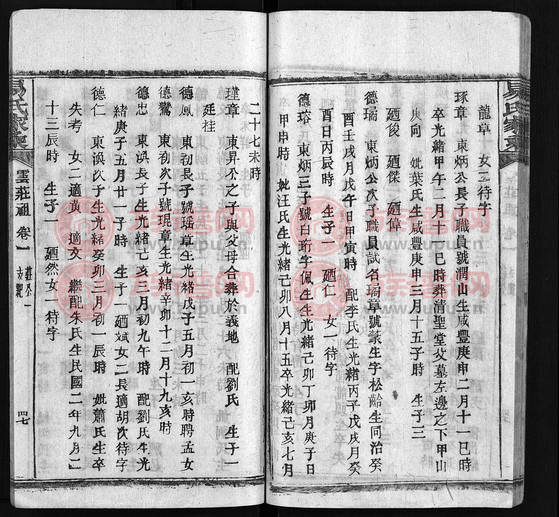 龍章 女二待字
琢章 東炳公長子職員號潤山生咸豐庚申二月十一巳時
卒光緒甲午二月十一巳時葬清聖堂父墓左邊之下甲山
庚向 妣葉氏生咸豐庚申三月十五子時 生子三
廼俊 廼傑 廼偉
德璊 東炳公次子職員試名瑀章號篆生字松齡生同治癸
酉壬戌月戊戌日甲寅時 配李氏生光緒丙子戊戌月癸
酉日丙辰時 生子一 廼仁 女一待字
德瑢 東炳公三子號白珩字佩生生光緒己卯丁卯月庚子日
甲申時 妣汪氏生光緒己卯八月十五卒光緒己亥七月
二十七未時
瑾章 東昇公之子與父母合葬於義地 配劉氏 生子一
廷桂
德鳳 東初長子號瑤章生光緒戊子五月初一亥時聘孟女
德鸞 東初次子號琨章生光緒辛卯十二月十九亥時
德忠 東溟長子生光緒己亥三月初九午時 配劉氏生光
緒庚子五月廿一子時 生子一 廼斌女二長適胡次待字
德仁 東溟次子生光緒癸卯三月初一辰時 妣蕭氏生卒
失考 女二適黃一適文 繼配朱氏生民國二年九月二
十三辰時 生子一 廼然女一待字
易氏家乘
雲莊祖 卷一
四七
易氏家乘